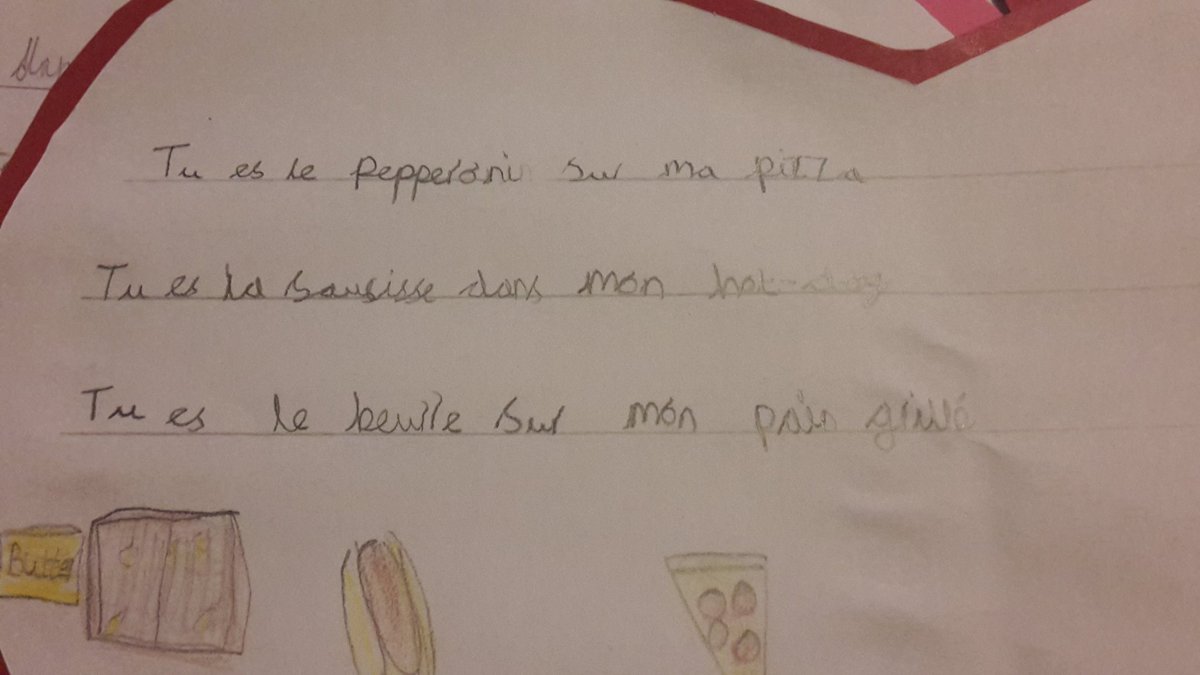 Tu es le pepperoni sur ma pizza
Tu es la sausisse dans mon hot-dog
Tu es le beurre sur mon pain grillé
Butter